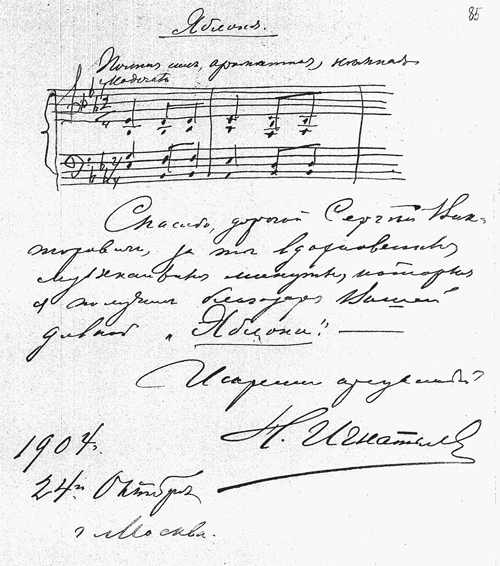 85
Яблоня.
Полная снег, ароматная, нежная
Moderato
Спасибо, дорогой Сергей Вик-
торович, за те вдохновенныя
музыкальныя минуты, которыя
я получил благодаря Вашей
дивной „Яблони“!
Искренно преданный
Н. Игнатьев
1904 г.
24го Октября
г. Москва.